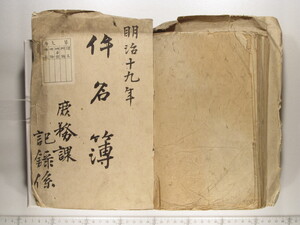 明治十九年
件名簿
庶務課
記録係